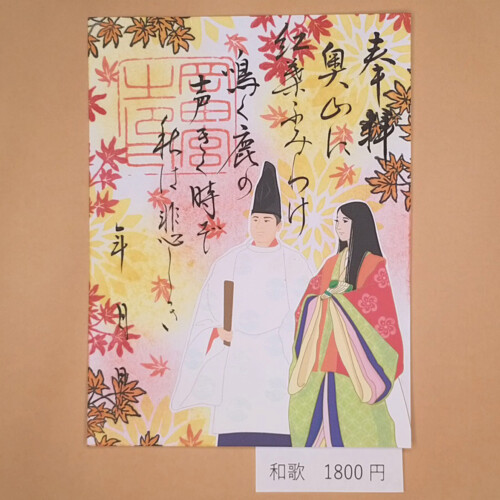 奉拝
奥山に
紅葉ふみわけ
鳴く鹿の
声きく時ぞ
秋は悲しき
年 月 日
和歌 1800円